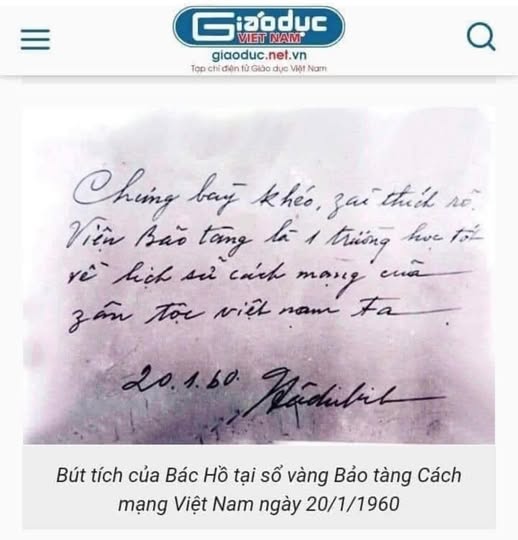 Giáodục
VIỆT NAM
giaoduc.net.vn
Tạp chí điện tử Giáo dục Việt Nam
Chưng bầy khéo, zải thích rõ.
Viện Bảo tàng là 1 trường học tốt
về lịch sử cách mạng của
zân tộc việt nam ta
20.1.60.
Bút tích của Bác Hồ tại sổ vàng Bảo tàng Cách
mạng Việt Nam ngày 20/1/1960